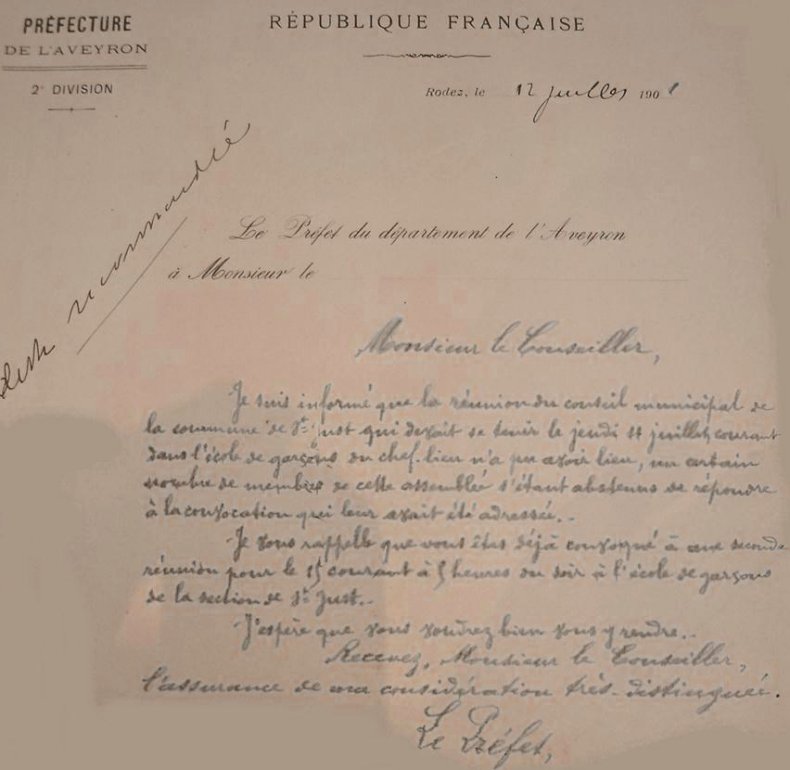 PRÉFECTURE
DE L'AVEYRON
2e DIVISION
RÉPUBLIQUE FRANÇAISE
Rodez, le 12 juillet 1901
recommandé
Le Préfet du département de l'Aveyron
à Monsieur le
Monsieur le Conseiller,
Je suis informé que la réunion du conseil municipal de
la commune de St Just qui devait se tenir le jeudi 11 juillet courant
dans l'école de garçons du chef-lieu n'a pu avoir lieu, un certain
nombre de membres de cette assemblée s'étant abstenus de répondre
à la convocation qui leur avait été adressée.
Je vous rappelle que vous êtes déjà convoqué à une seconde
réunion pour le 15 courant à 5 heures du soir à l'école de garçons
de la section de St Just.
J'espère que vous voudrez bien vous y rendre.
Recevez, Monsieur le Conseiller,
l'assurance de ma considération très-distinguée.
Le Préfet,